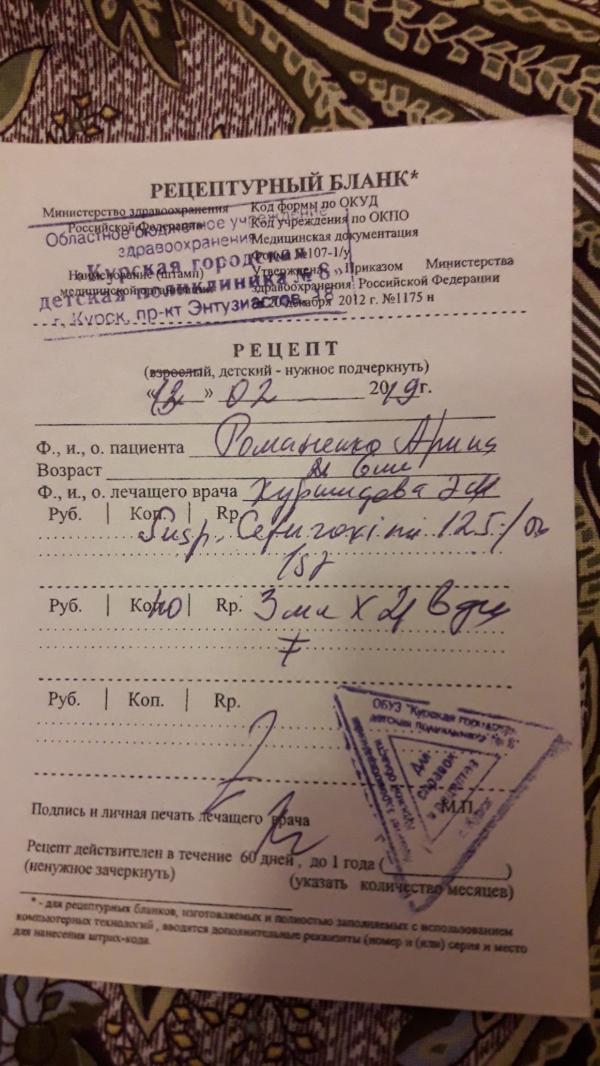 РЕЦЕПТУРНЫЙ БЛАНК*
Министерство здравоохранения
Российской Федерации
Код формы по ОКУД
Код учреждения по ОКПО
Медицинская документация
Форма №107-1/у
Утверждена Приказом Министерства
здравоохранения Российской Федерации
20 декабря 2012 г. №1175 н
Наименование (штамп)
медицинской
Областное бюджетное учреждение
здравоохранения
Курская городская
детская поликлиника №8»
г. Курск, пр-кт Энтузиастов, 18
РЕЦЕПТ
(взрослый, детский - нужное подчеркнуть)
« » 02 2019г.
Ф., и., о. пациента Романенко Арина
Возраст
Ф., и., о. лечащего врача
Руб. | Коп. | Rp.
Susp. 125
Руб. | Коп. | Rp. 3 мл х
7
Руб. | Коп. | Rp.
Для
справок
и рецептов
г. Курск
М.П.
Подпись и личная печать лечащего врача
Рецепт действителен в течение 60 дней, до 1 года ( )
(ненужное зачеркнуть) (указать количество месяцев)
* - для рецептурных бланков, изготовляемых и полностью заполняемых с использованием
компьютерных технологий, вводятся дополнительные реквизиты (номер и (или) серия и место
для нанесения штрих-кода.